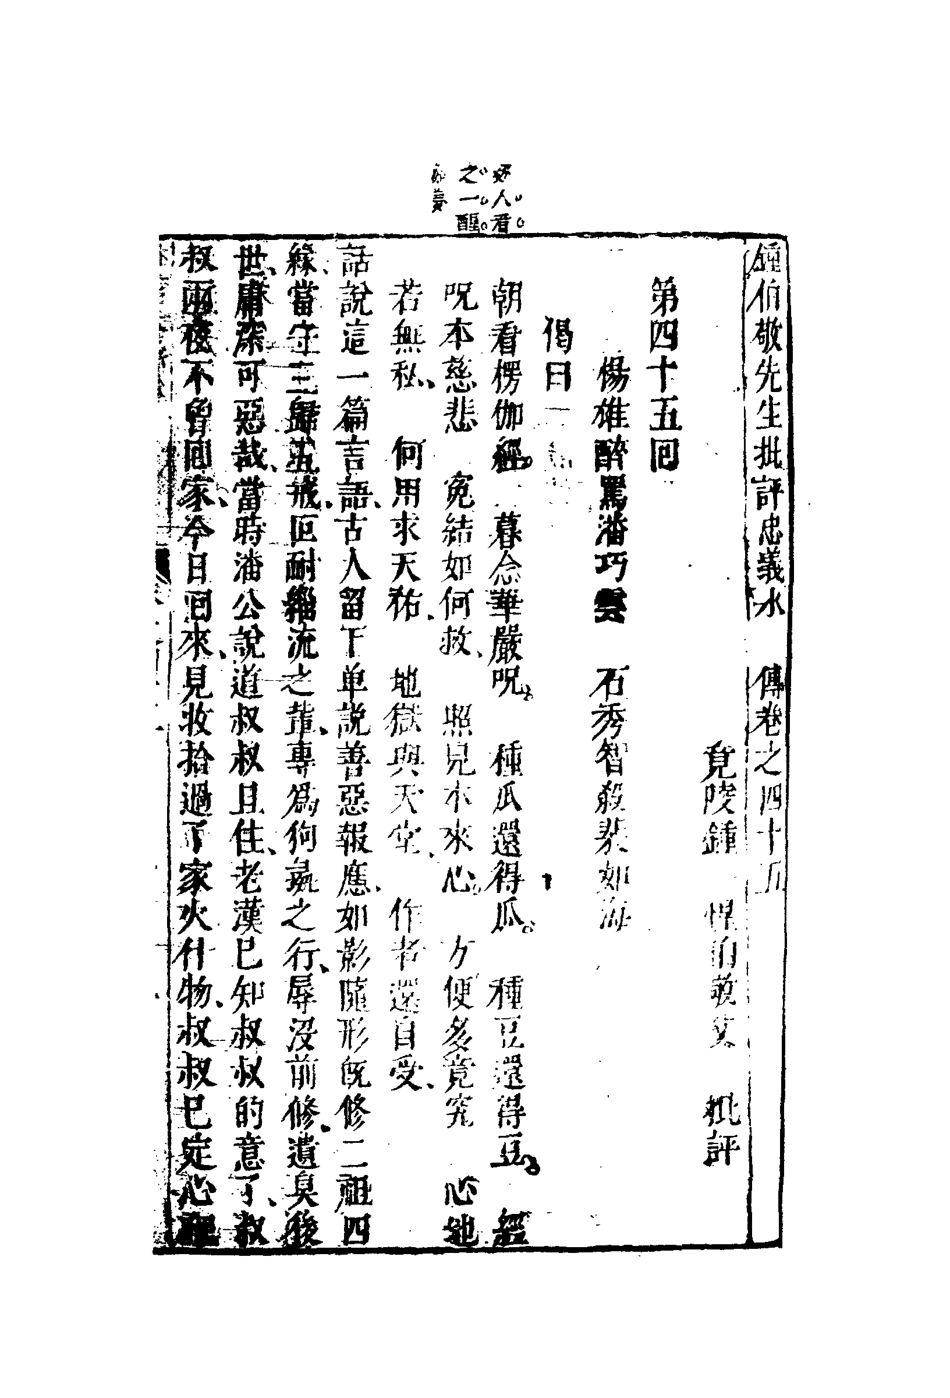 好人看
之一醒
鍾伯敬先生批評忠義水　傳卷之四十五
竟陵鍾　惺伯敬父　批評
第四十五回
楊雄醉罵潘巧雲　石秀智殺裴如海
偈曰
朝看楞伽經　暮念華嚴呪　種瓜還得瓜　種豆還得豆　經
呪本慈悲　寃結如何救　照見本來心　方便多竟究　心地
若無私　何用求天祐　地獄與天堂　作者還自受
話說這一篇言語古人留下单說善惡報應如影隨形旣修二祖四
緣當守三歸五戒叵耐緇流之輩專為狗彘之行辱没前修遺臭後
世庸深可惡哉當時潘公說道叔叔且住老漢已知叔叔的意了叔
叔兩夜不曾囘家今日囘來見收拾過了家火什物叔叔已定心裡